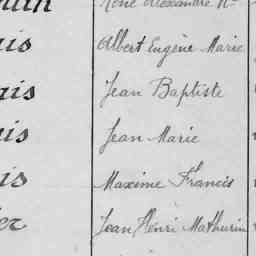 René Alexandre
Albert Eugène Marie
ais Jean Baptiste
Jean Marie
is Maxime Francis
er Jean Henri Mathurin